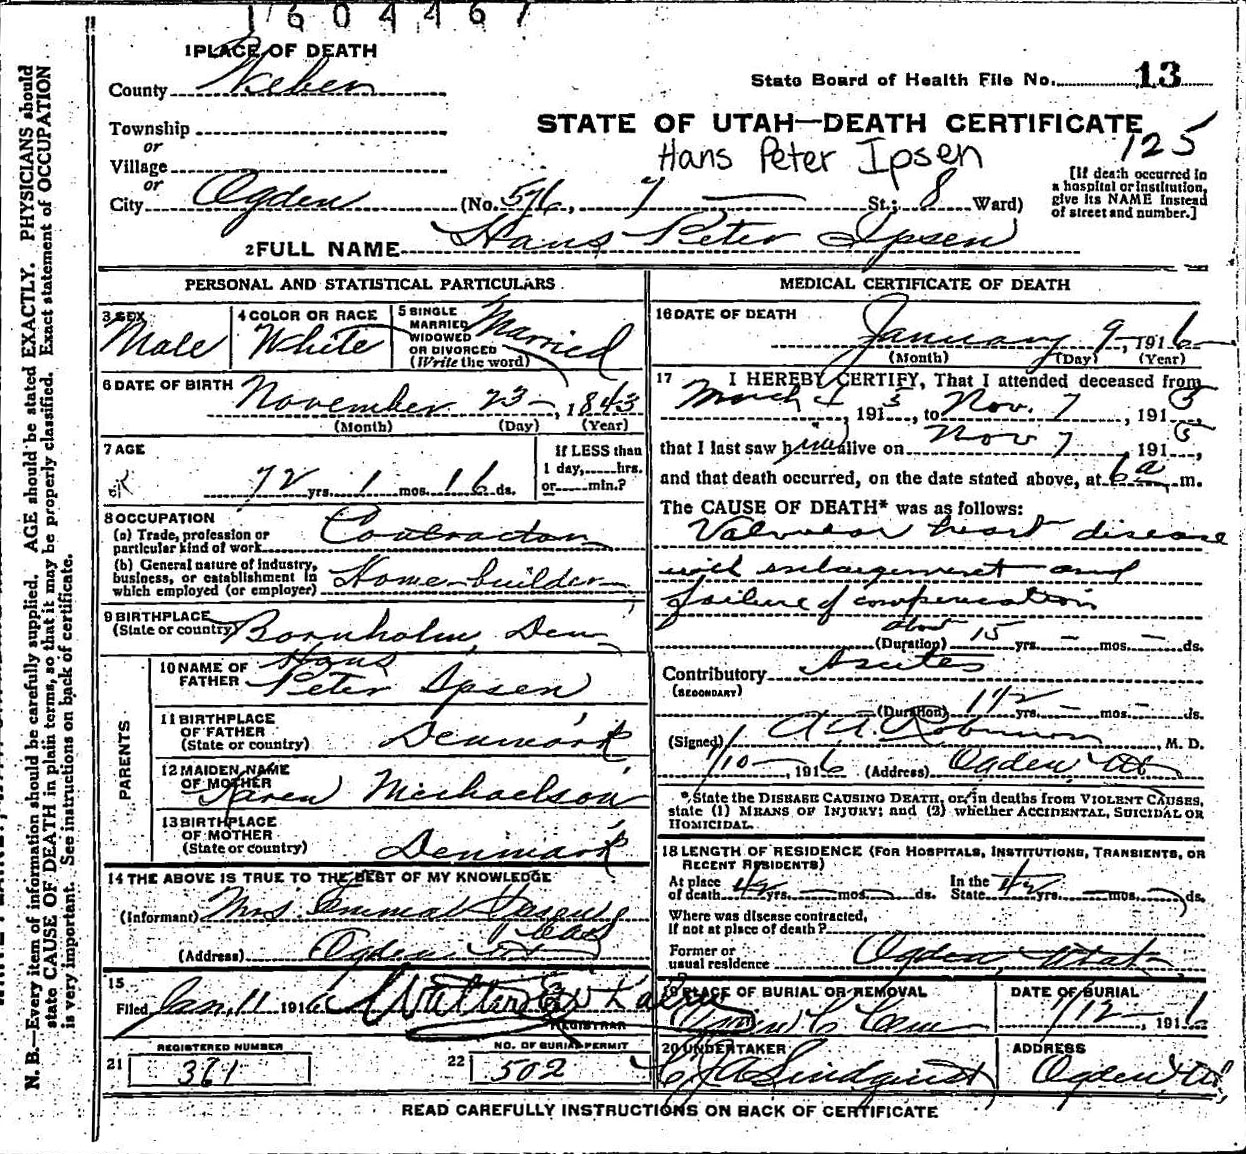 1604467
1 PLACE OF DEATH
County Weber
State Board of Health File No. 13
Township
or
Village
or
STATE OF UTAH—DEATH CERTIFICATE
Hans Peter Ipsen
125
[If death occurred in
a hospital or institution,
give its NAME instead
of street and number.]
City Ogden (No. 576, 7 — St.; 8 Ward)
2 FULL NAME Hans Peter Ipsen
PERSONAL AND STATISTICAL PARTICULARS
3 SEX
Male
4 COLOR OR RACE
White
5 SINGLE
MARRIED
WIDOWED
OR DIVORCED
(Write the word)
Married
6 DATE OF BIRTH
November 23 —, 1843
(Month) (Day) (Year)
7 AGE
72 yrs. 1 mos. 16 ds.
If LESS than
1 day, hrs.
or min.?
8 OCCUPATION
(a) Trade, profession or
particular kind of work Contractor
(b) General nature of industry,
business, or establishment in
which employed (or employer) Home-builder
9 BIRTHPLACE
(State or country) Bornholm, Den
PARENTS
10 NAME OF
FATHER
Hans
Peter Ipsen
11 BIRTHPLACE
OF FATHER
(State or country) Denmark
12 MAIDEN NAME
OF MOTHER
Karen Michaelson
13 BIRTHPLACE
OF MOTHER
(State or country) Denmark
14 THE ABOVE IS TRUE TO THE BEST OF MY KNOWLEDGE
(Informant) Mrs. Emma
(Address) Ogden, Ut
15
Filed Jan. 11 1916
REGISTRAR
21
REGISTERED NUMBER
361
22
NO. OF BURIAL PERMIT
502
MEDICAL CERTIFICATE OF DEATH
16 DATE OF DEATH
January 9—, 1916
(Month) (Day) (Year)
17 I HEREBY CERTIFY, That I attended deceased from
March 1, 1915, to Nov. 7, 1915,
that I last saw him alive on Nov 7, 1915,
and that death occurred, on the date stated above, at 6 a m.
The CAUSE OF DEATH* was as follows:
Valvular heart disease
with enlargement and
failure of compensation
about
(Duration) 15 yrs. — mos. — ds.
Contributory Ascites
(SECONDARY)
(Duration) 1 1/2 yrs. — mos. — ds.
(Signed) A A. Robinson, M. D.
1/10 —, 1916 (Address) Ogden, Ut
*State the DISEASE CAUSING DEATH, or, in deaths from VIOLENT CAUSES,
state (1) MEANS OF INJURY; and (2) whether ACCIDENTAL, SUICIDAL OR
HOMICIDAL.
18 LENGTH OF RESIDENCE (FOR HOSPITALS, INSTITUTIONS, TRANSIENTS, OR
RECENT RESIDENTS)
At place
of death 42 yrs. — mos. — ds.
In the
State 42 yrs. — mos. — ds.
Where was disease contracted,
if not at place of death?
Former or
usual residence Ogden, Utah
19 PLACE OF BURIAL OR REMOVAL
DATE OF BURIAL
1/12 —, 1916
20 UNDERTAKER
Lindquist
ADDRESS
Ogden, Ut.
READ CAREFULLY INSTRUCTIONS ON BACK OF CERTIFICATE
N. B.—Every item of information should be carefully supplied. AGE should be stated EXACTLY. PHYSICIANS should
state CAUSE OF DEATH in plain terms, so that it may be properly classified. Exact statement of OCCUPATION
is very important. See instructions on back of certificate.